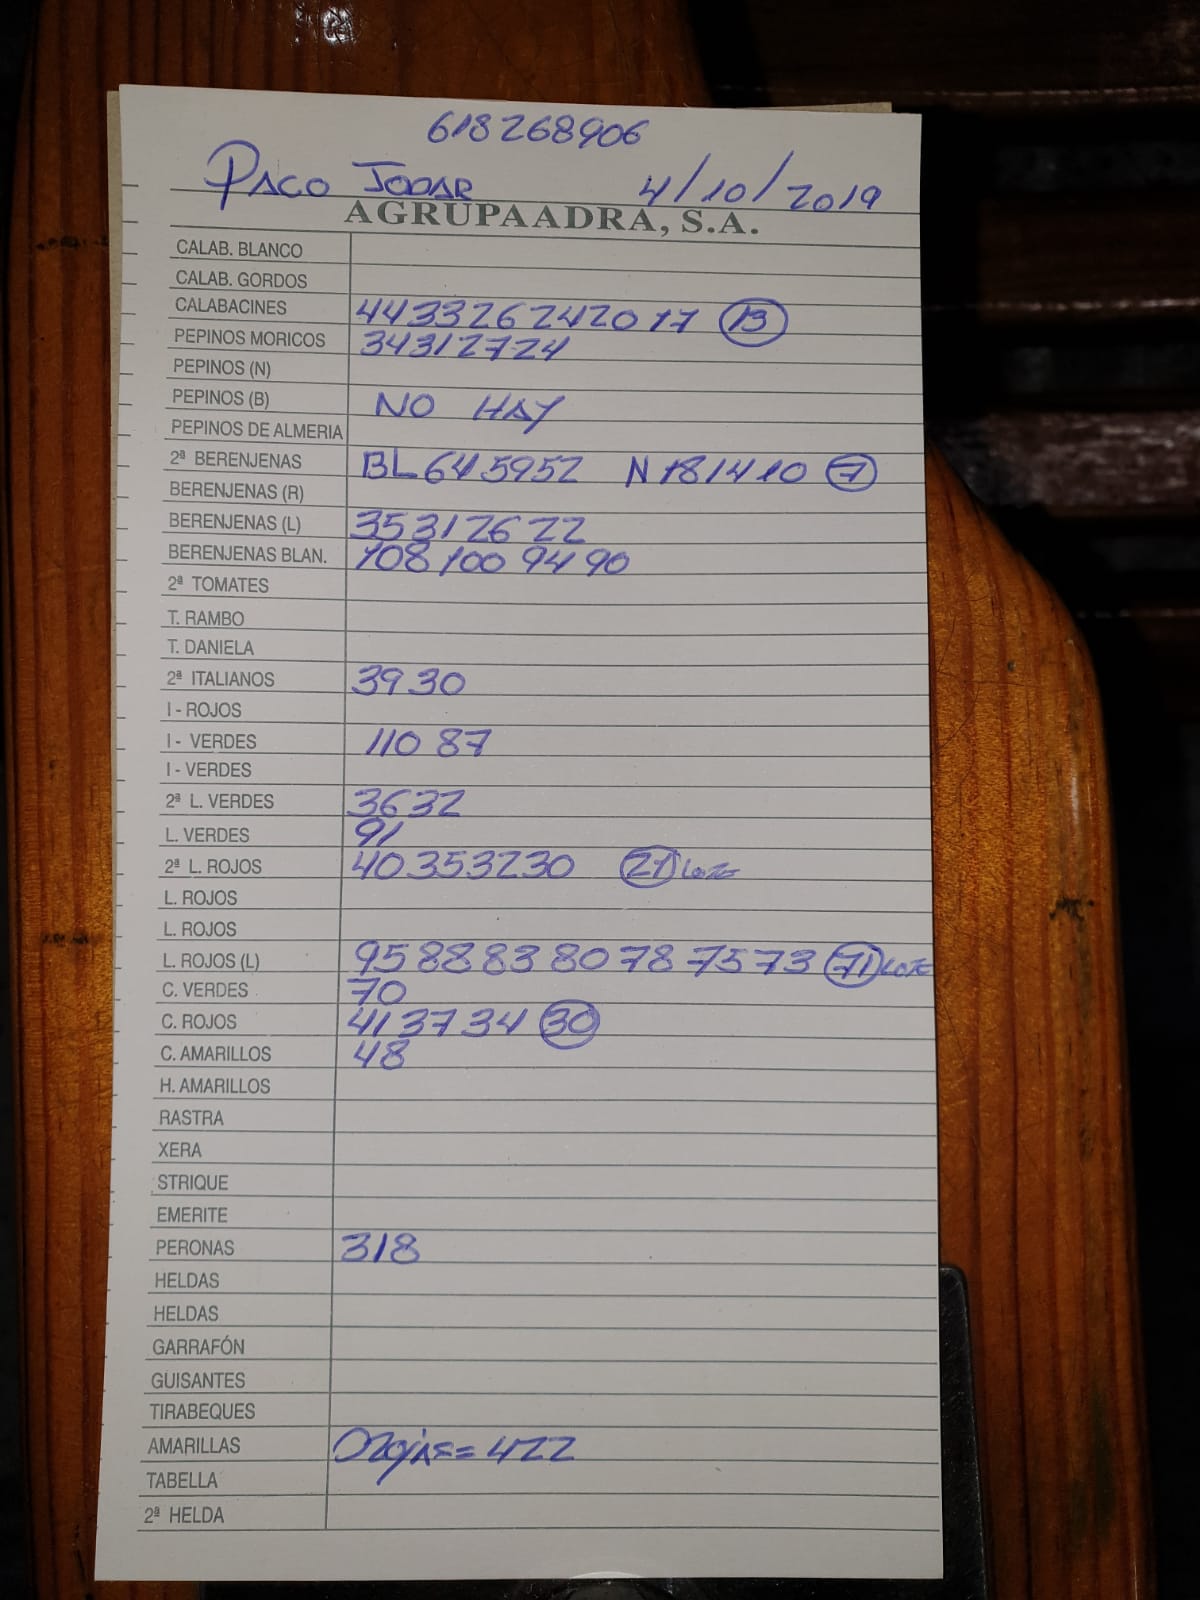 618268906
PACO JODAR 4/10/2019
AGRUPAADRA, S.A.
CALAB. BLANCO
CALAB. GORDOS
CALABACINES 44 33 26 24 20 17 13
PEPINOS MORICOS 34 31 27 24
PEPINOS (N)
PEPINOS (B) NO HAY
PEPINOS DE ALMERIA
2ª BERENJENAS BL 64 59 52 N 18 14 10 7
BERENJENAS (R)
BERENJENAS (L) 35 31 26 22
BERENJENAS BLAN. 108 100 94 90
2ª TOMATES
T. RAMBO
T. DANIELA
2ª ITALIANOS 39 30
I - ROJOS
I - VERDES 110 87
I - VERDES
2ª L. VERDES 36 32
L. VERDES 91
2ª L. ROJOS 40 35 32 30 LOTE
L. ROJOS
L. ROJOS
L. ROJOS (L) 95 88 83 80 78 75 73 71 LOTE
C. VERDES 70
C. ROJOS 41 37 34 30
C. AMARILLOS 48
H. AMARILLOS
RASTRA
XERA
STRIQUE
EMERITE
PERONAS 318
HELDAS
HELDAS
GARRAFÓN
GUISANTES
TIRABEQUES
AMARILLAS = 422
TABELLA
2ª HELDA